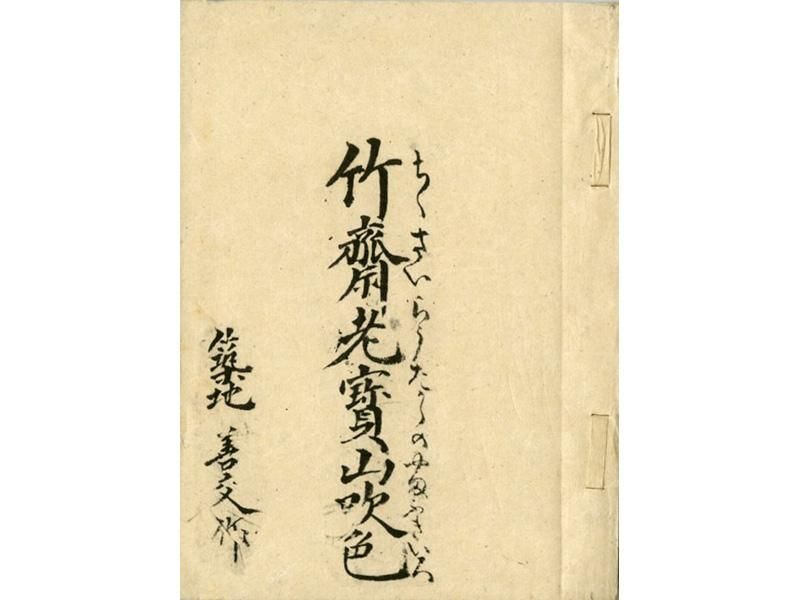 ちくさいらうたからのやまぶきいろ
竹齋老寶山吹色
築地善交作